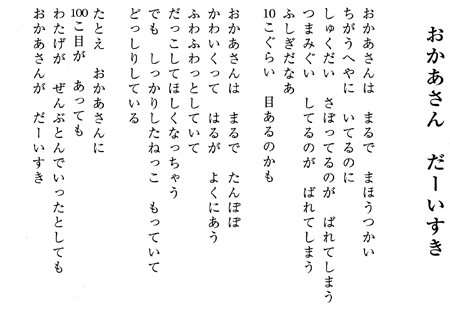 おかあさん　だーいすき
おかあさんは　まるで　まほうつかい
ちがうへやに　いてるのに
しゅくだい　さぼってるのが　ばれてしまう
つまみぐい　してるのが　ばれてしまう
ふしぎだなあ
10こぐらい　目あるのかも
おかあさんは　まるで　たんぽぽ
かわいくって　はるが　よくにあう
ふわふわっとしていて
だっこしてほしくなっちゃう
でも　しっかりしたねっこ　もっていて
どっしりしている
たとえ　おかあさんに
100こ目が　あっても
わたげが　ぜんぶとんでいったとしても
おかあさんが　だーいすき